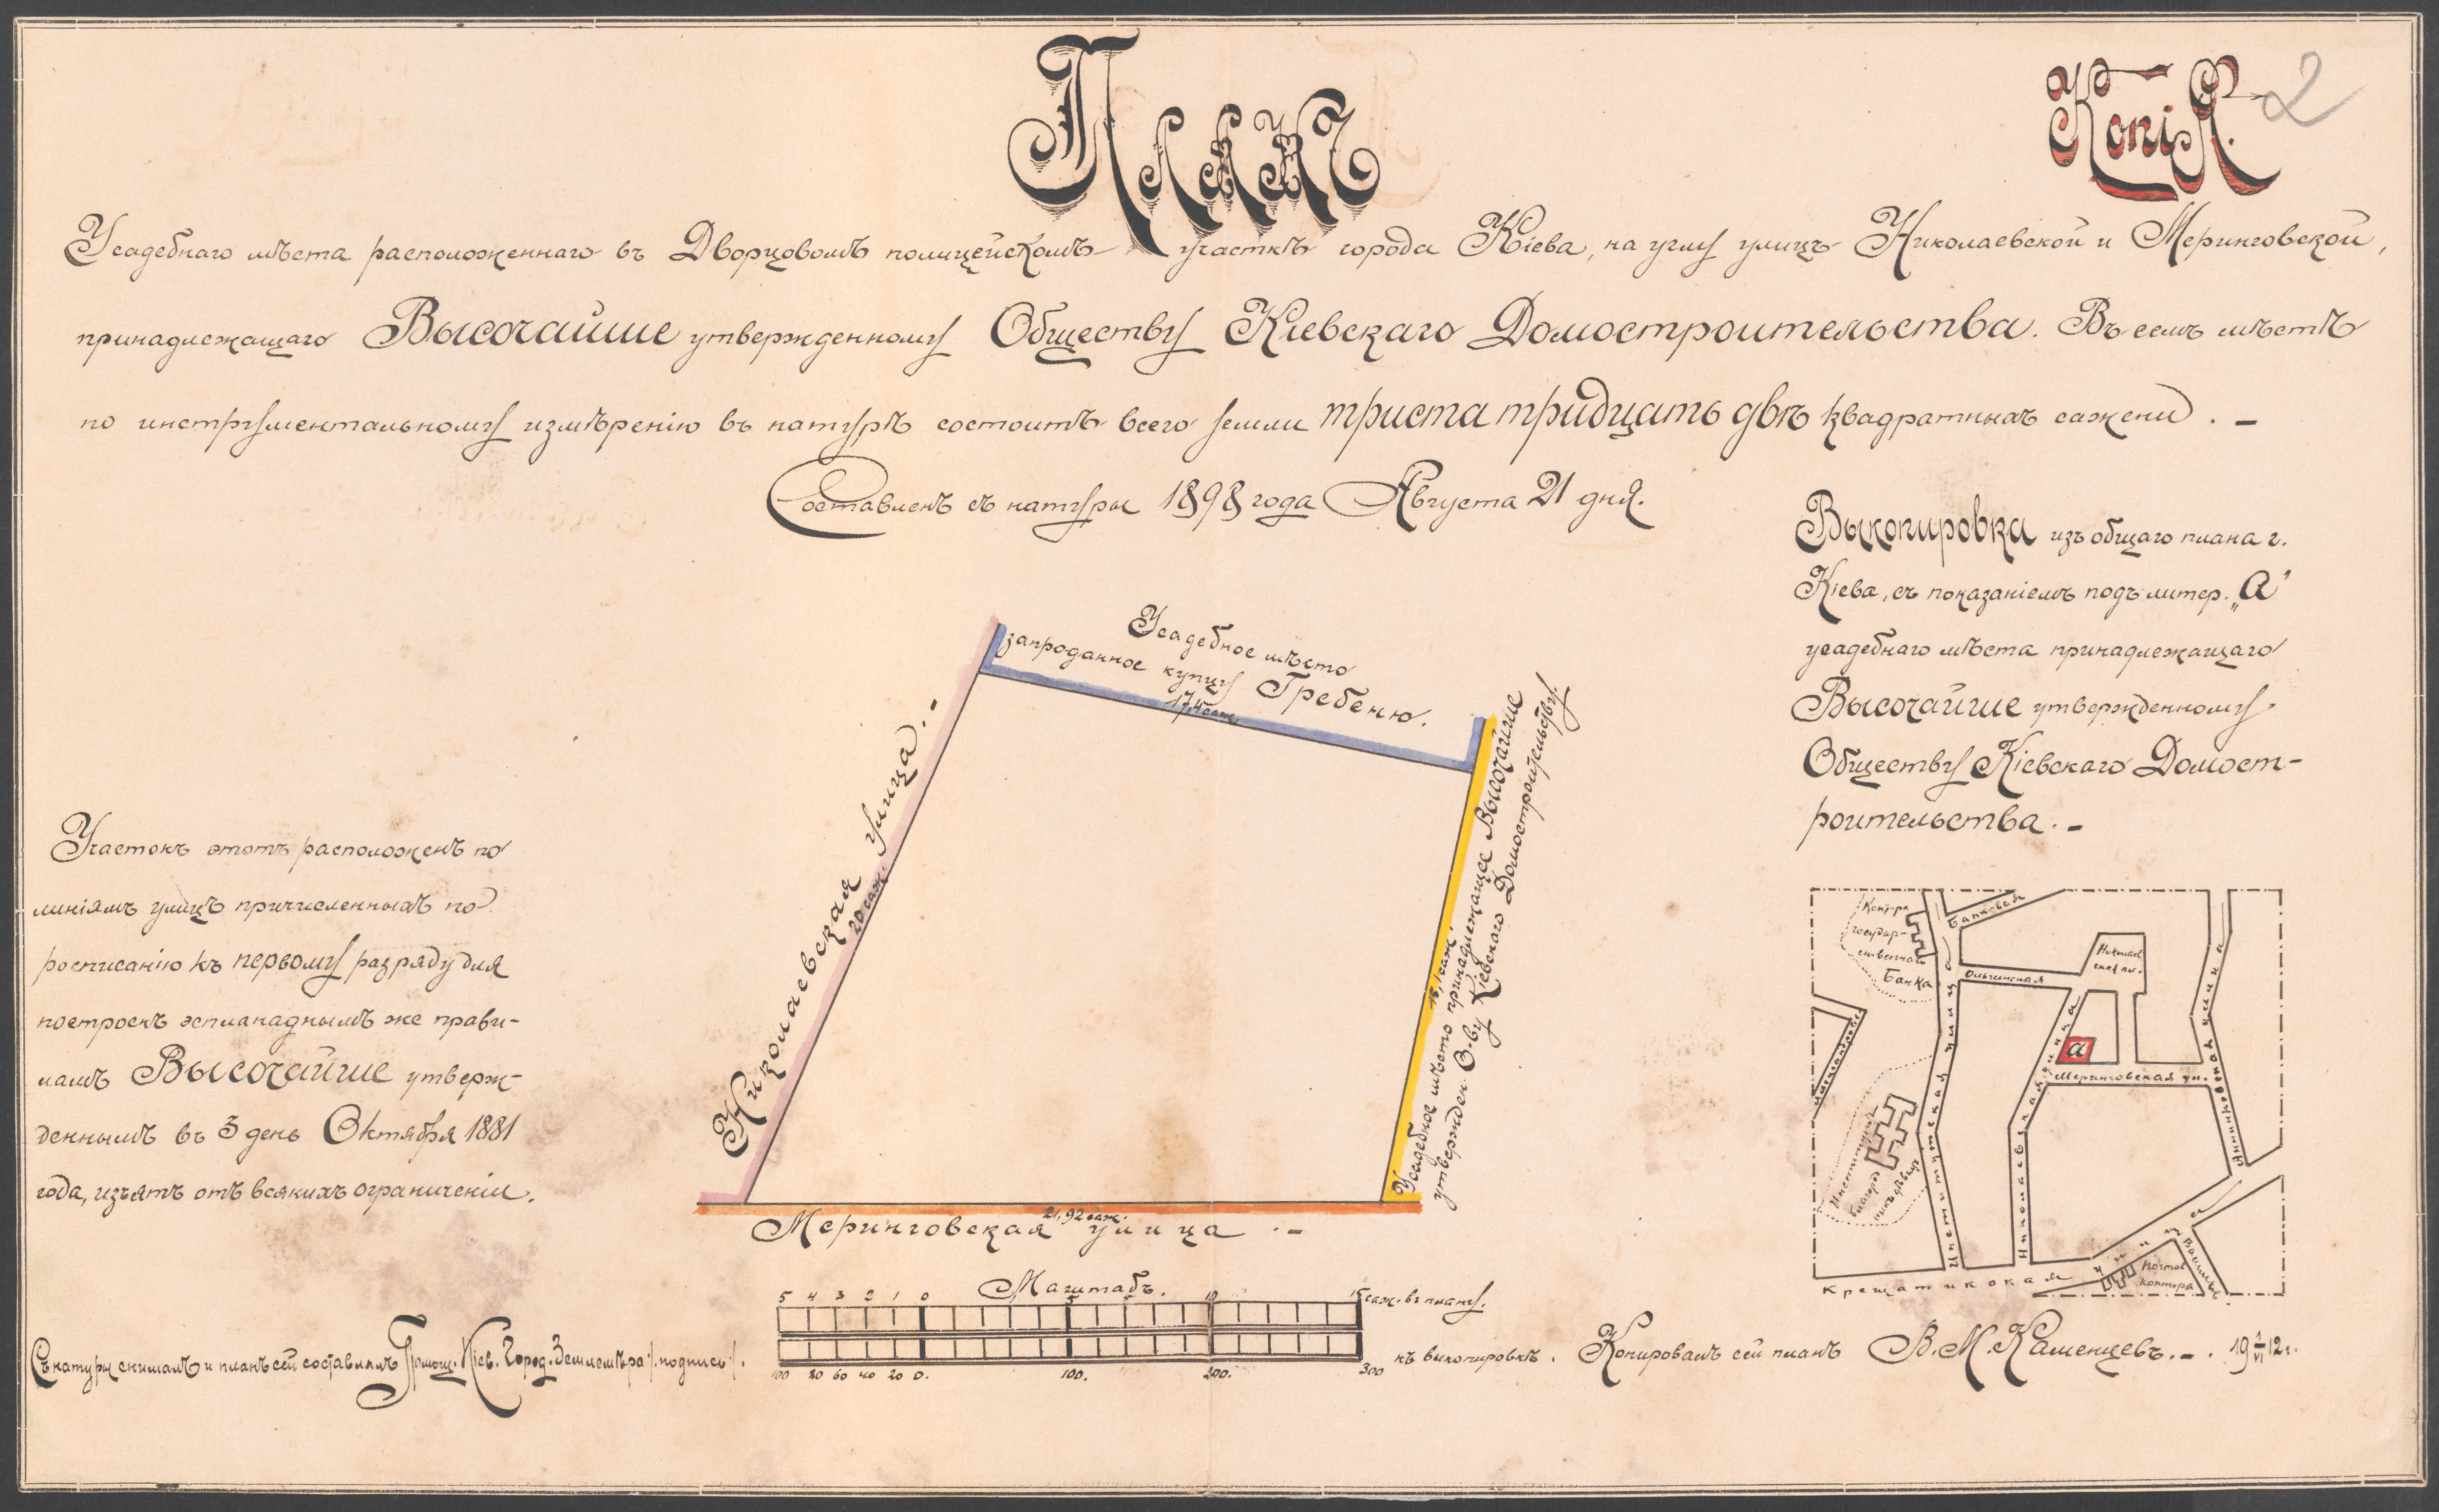 Планъ
Копія.
2
Усадебнаго мѣста расположеннаго въ Дворцовомъ полицейскомъ участкѣ города Кіева, на углу улицъ Николаевской и Меринговской,
принадлежащаго Высочайше утвержденному Обществу Кіевскаго Домостроительства. Въ семъ мѣстѣ
по инструментальному измѣренію въ натурѣ состоитъ всего земли триста тридцать двѣ квадратныхъ сажени. –
Составленъ съ натуры 1898 года Августа 21 дня.
Выкопировка изъ общаго плана г.
Кіева, съ показаніемъ подъ литер. „А"
усадебнаго мѣста принадлежащаго
Высочайше утвержденному
Обществу Кіевскаго Домост-
роительства. –
Усадебное мѣсто
запроданное купцу Гребеню.
17,4 саж.
Николаевская улица. –
20 саж.
Усадебное мѣсто принадлежащее Высочайше
утвержден. О-ву Кіевскаго Домостроительству.
21,92 саж.
Меринговская улица. –
Участокъ этотъ расположенъ по
линіямъ улицъ причисленныхъ по
росписанію къ первому разряду для
построекъ эспланаднымъ же прави-
ламъ Высочайше утверж-
деннымъ въ 3 день Октября 1881
года, изъятъ отъ всякихъ ограниченій.
Контора
государ-
ственнаго
Банка
Банковая
Ольгинская
Николаев
ская пл.
а
Меринговская ул.
Институтская улица
Николаевская улица
Аннинковская улица
Институтъ
благор.
дѣвиц
Крещатикская улица
Почтов
контора
Масштабъ.
5 4 3 2 1 0 5 10 15 саж. въ планѣ.
100 80 60 40 20 0. 100. 200. 300 къ выкопировкѣ.
Съ натуры снималъ и планъ сей составлялъ Помощ. Кіев. Город. Землемѣра /подпись/.
Копировалъ сей планъ В. М. Каменцевъ. –